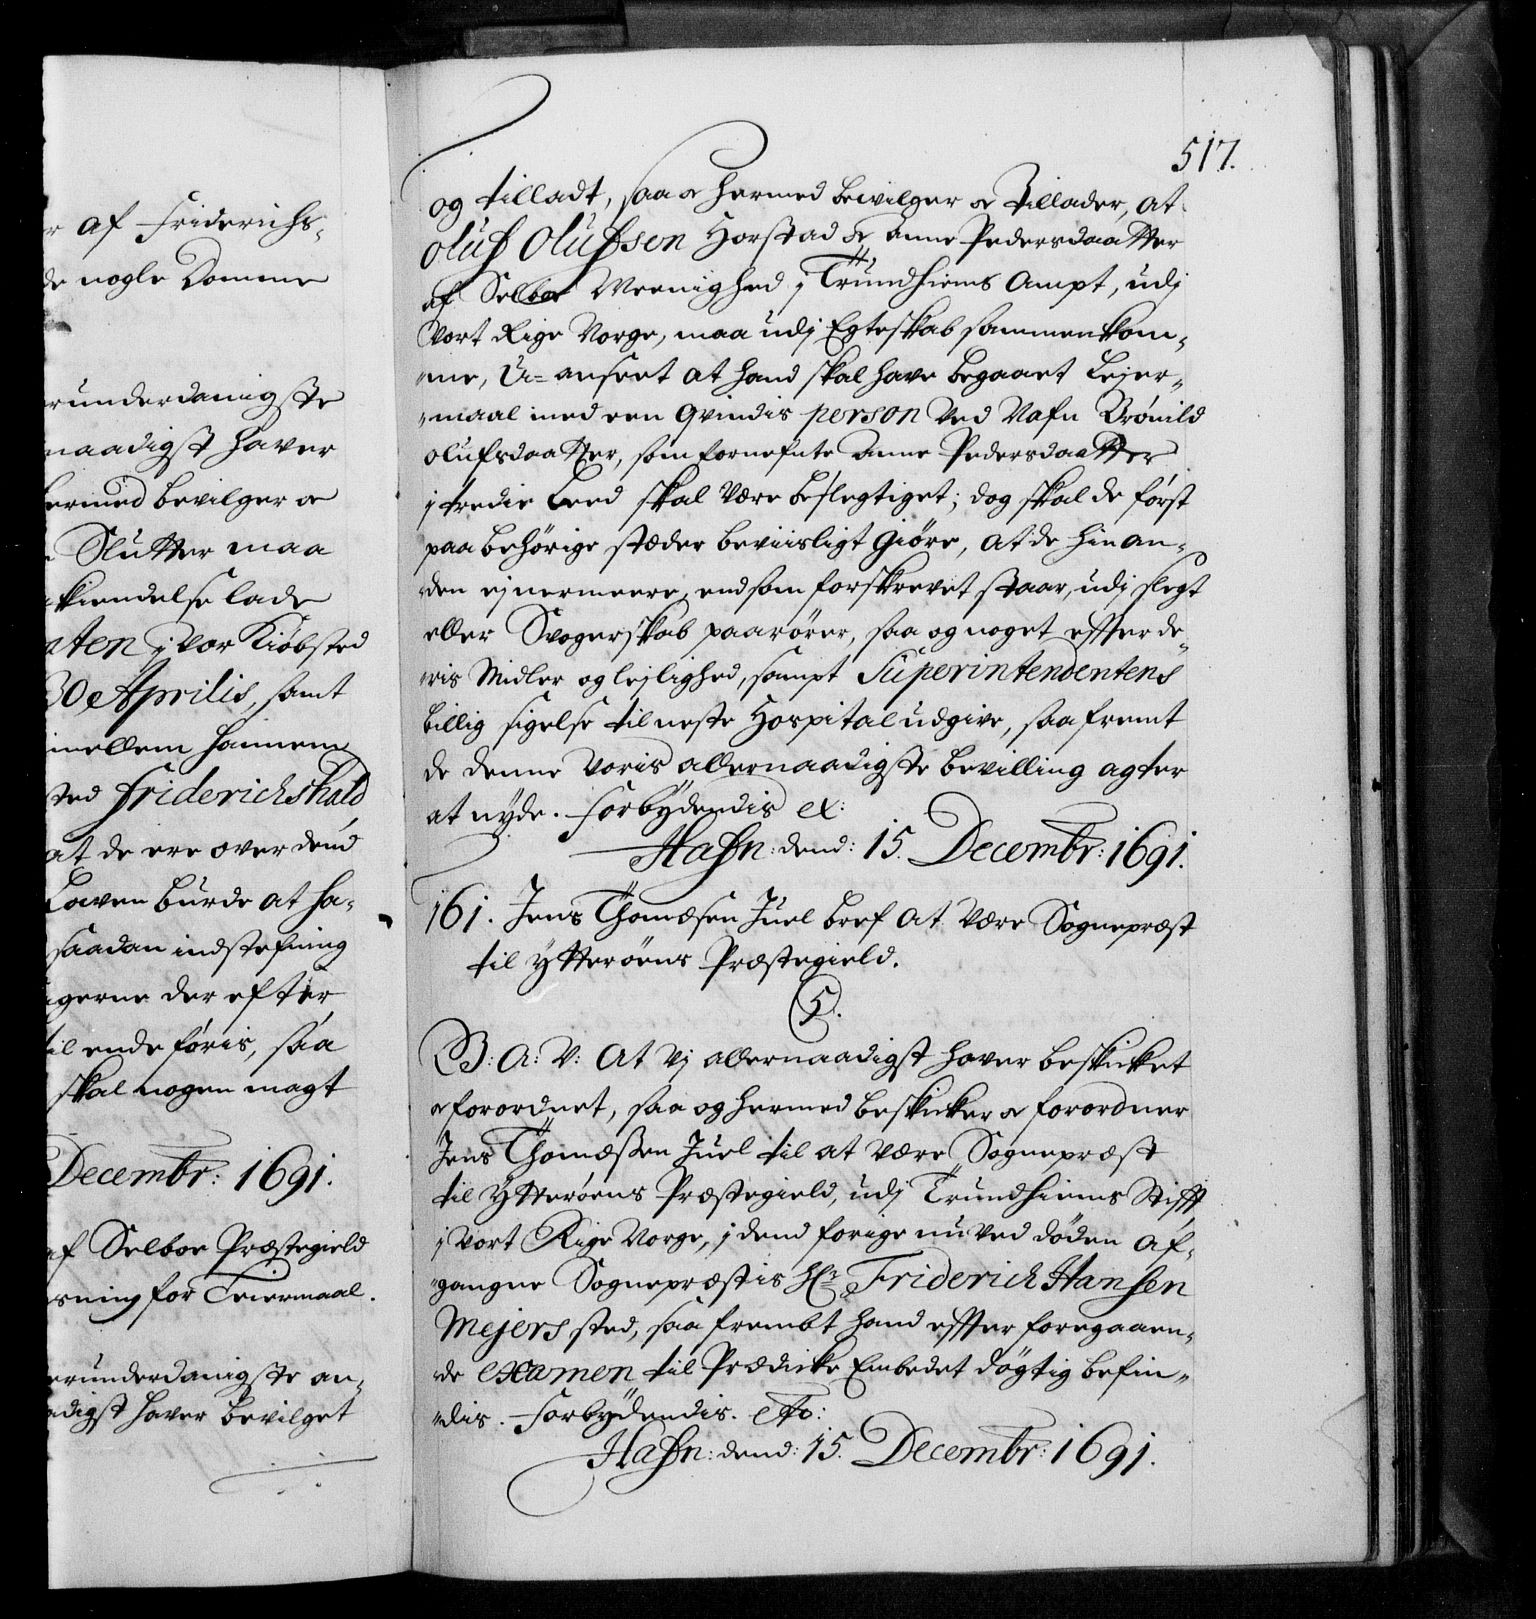 r af Friderichs-
de nogle Domme
erunderdanigste
naadigst haver
hermed bevilger oc
Slutter maa
kiendelse lade
aten j vor Kiøbsted
30 Aprilis, samt
imellem hannem
sted Friderichshald
at de ere over dend
Lowen burde at ha-
saadan indstefning
gerne der efter
til ende føris, saa
skal nogen magt
Decembr: 1691.
af Selboe Præstegield
sning for Leiermaal.
erunderdanigste an-
adigst haver bevilget
517.
og tilladt, saa oc hermed bevilger oc Tillader, at
Oluf Olufsen Horstad oc Anne Pedersdaatter
af Selboe Meenighed j Trundhiems Ampt, udj
Vort Rige Norge, maa udj Egteskab sammenkom-
me, U-anseet at hand skal have begaaet Lejer-
maal med een Qvindis person ved Nafn Brønild
Olufsdaatter, som fornefnte Anne Pedersdaatter
j tredie Leed skal være beslegtiget; dog skal de først
paa behørige stæder beviisligt Giøre, at de hinan-
den ej nermeere, end som forskrevet staar, udj slegt
eller Svogerskab paarører, saa og noget effter de-
ris Midler og lejlighed, sampt Superintendentens
billig sigelse til neste Hospital udgive, saa fremt
de denne voris allernaadigste bevilling agter
at nyde. Forbydendis etc:
Hafn: dend: 15. Decembr: 1691.
161. Jens Thomæsen Juel bref at være Sognepræst
til Ytterøens Præstegield.
C5.
G: A: V: At Vj allernaadigst haver beskicket
oc forordnet, saa og hermed beskicker oc forordner
Jens Thomæssen Juel til at være Sognepræst
til Ytterøens Præstegield, udj Trundhiems Stifft
j Vort Rige Norge, j dend forige nu ved døden af-
gangne Sognepræstis Hr. Friderich Hansen
Mejers sted, saa frembt hand effter foregaaen-
de examen til Prædicke Embedet døgtig befin-
dis. Forbydendis. etc:
Hafn: dend: 15. Decembr: 1691.